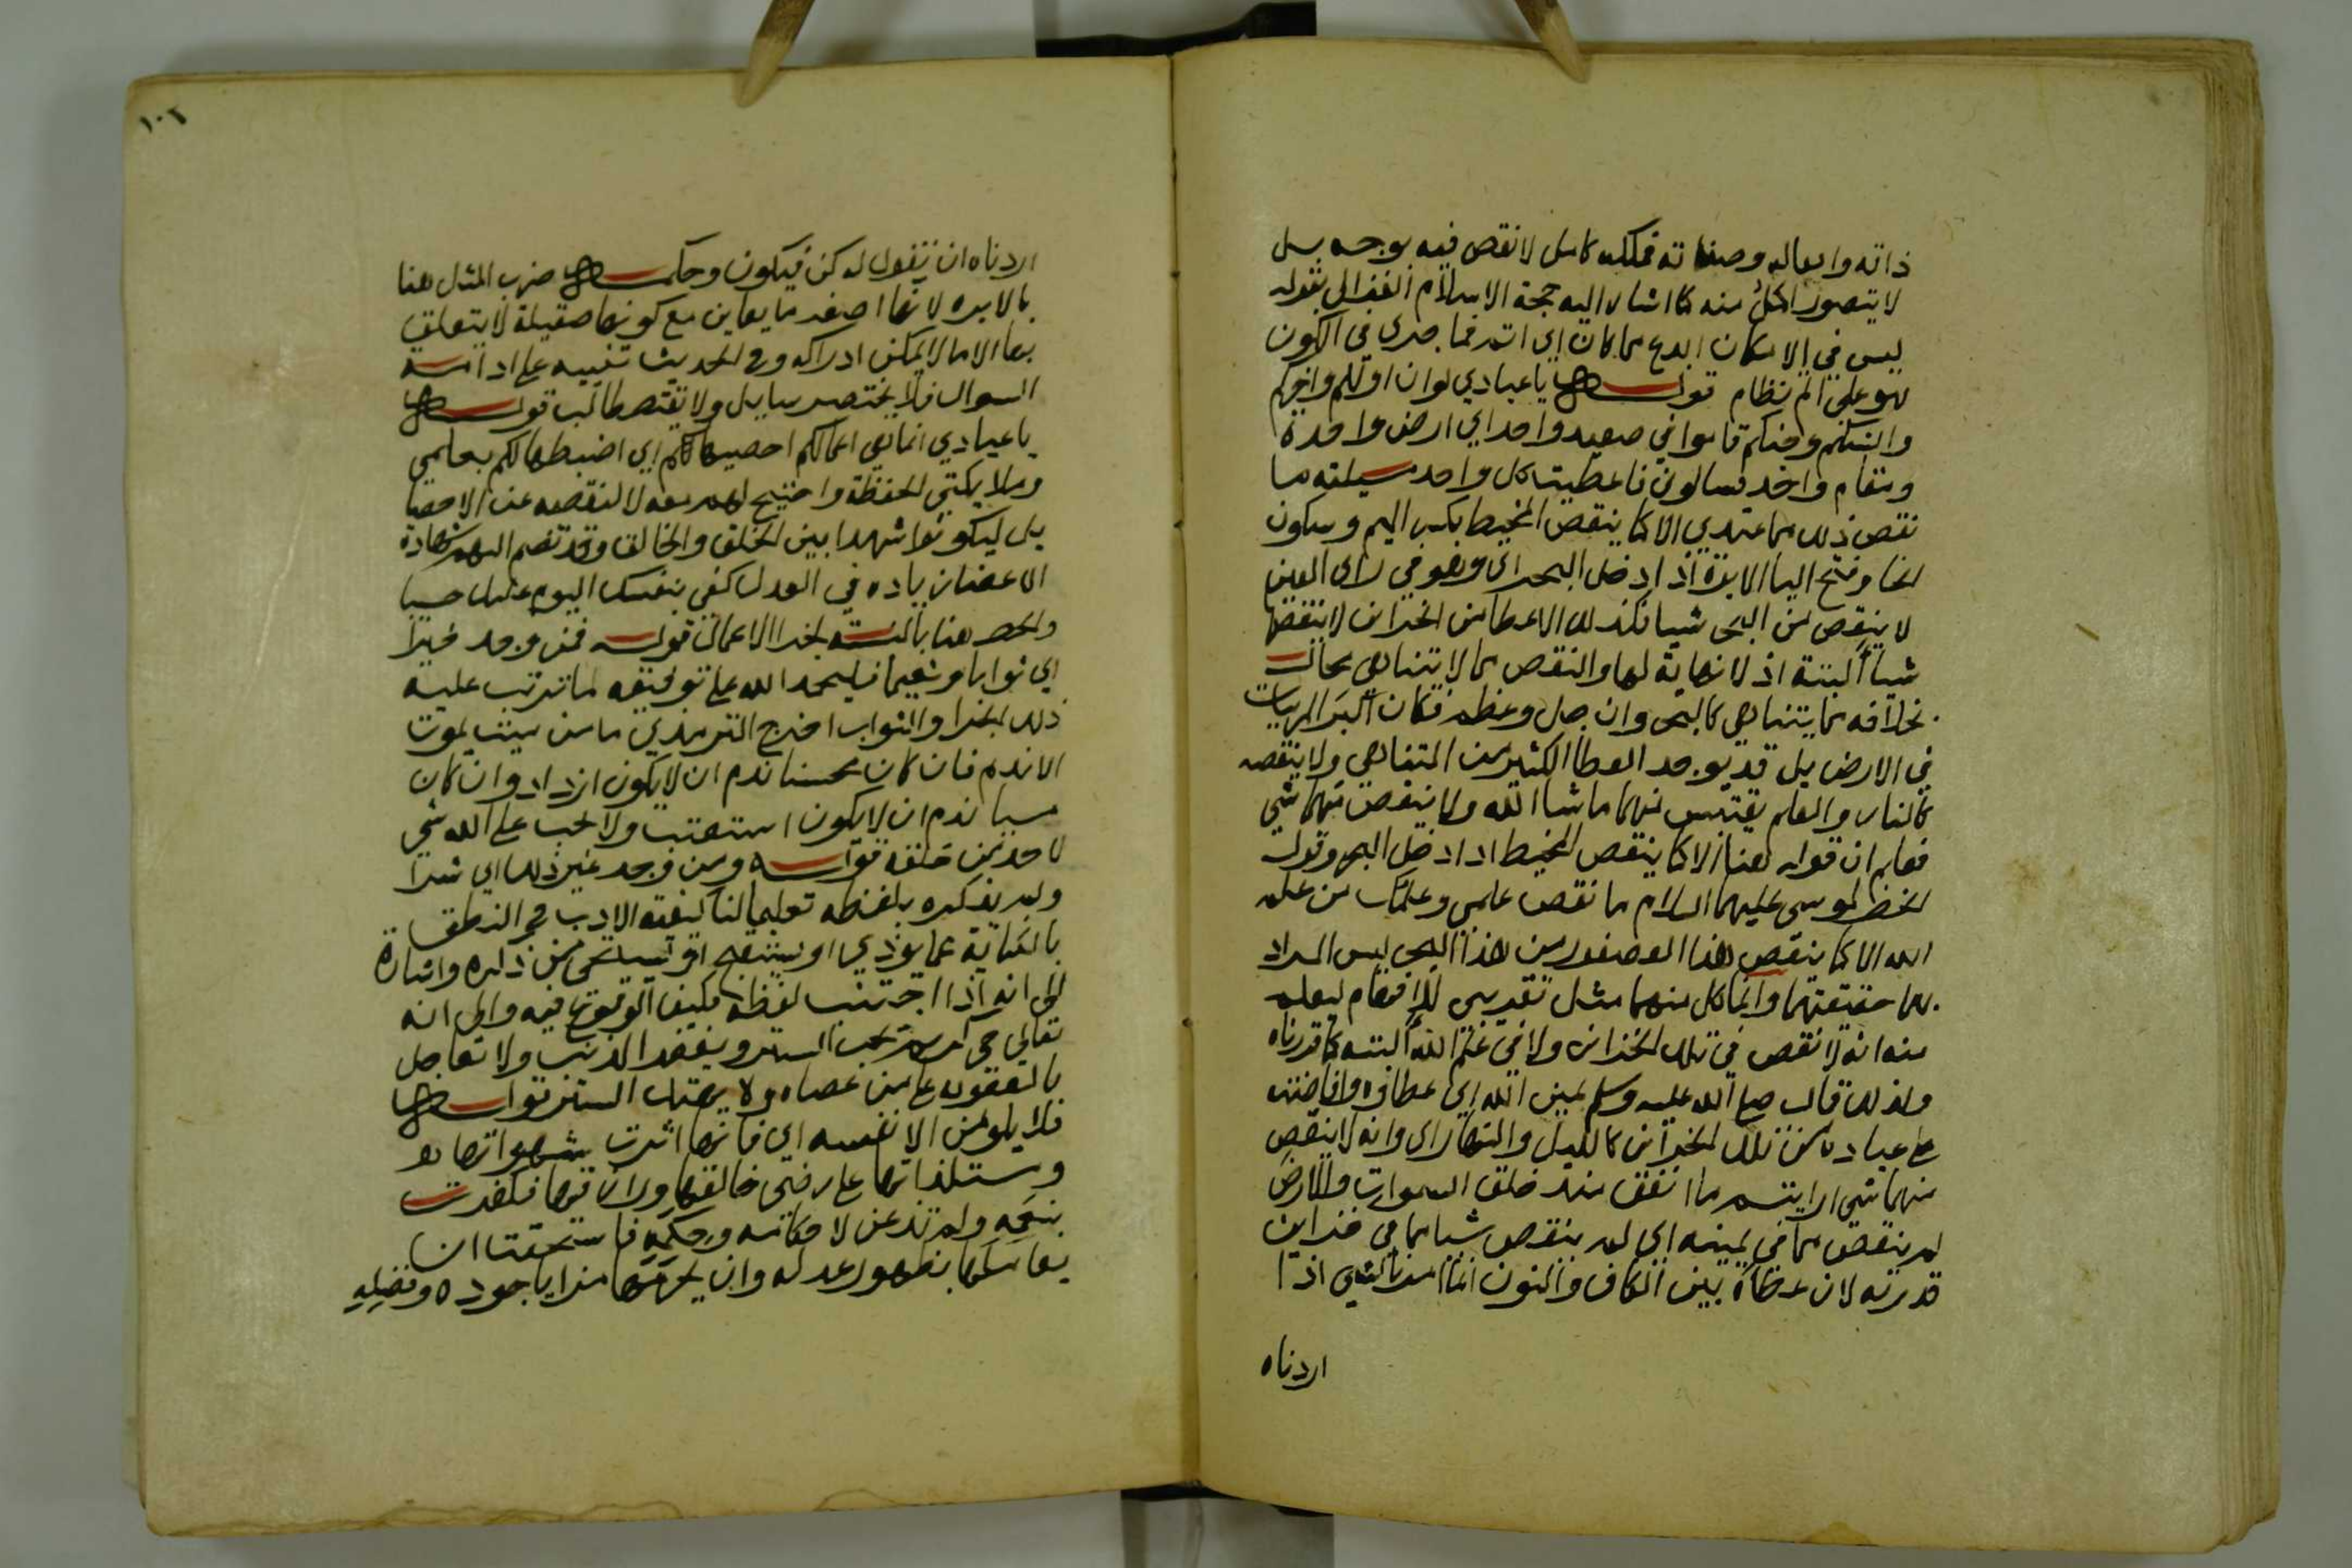 ذاته وافعاله وصفاته فملكه كامل لا نقص فيه بوجه بل
لا يتصور اكمل منه كما اشار اليه حجة الاسلام الغزالي بقوله
ليس في الامكان ابدع مما كان اي انه فما جري في الكون
فهو علي اتم نظام قوله يا عبادي لو ان اولكم واخركم
وانسكم وجنكم قاموا في صعيد واحد اي ارض واحدة
ومقام واحد فسالوني فاعطيت كل واحد مسيلته ما
نقص ذلك مما عندي الا كما ينقص المخيط بكسر الميم وسكون
الخا وفتح اليا الابرة اذا ادخل البحر اي وهو في راي العين
لا ينقص من البحر شيا فكذلك الاعطا من الخزاين لا ينقصها
شيا البتة اذ لا نهاية لها والنقص مما لا يتناهي محال
بخلافه مما يتناهي كالبحر وان جل وعظم فكان اكبر المرييات
في الارض بل قد يوجد العطا الكثير من المتناهي ولا ينقصه
كالنار والعلم يقتبس منهما ما شا الله ولا ينقص منهما شي
فعلم ان قوله هنا الا كما ينقص المخيط اذا دخل البحر وقول
الخضر لموسي عليهما السلام ما نقص علمي وعلمك من علم
الله الا كما ينقص هذا العصفور من هذا البحر ليس المراد
بهما حقيقتهما وانما كل منهما مثل تقريبي للافهام ليعلم
منه انه لا نقص في تلك الخزاين ولا في علم الله البتة كما قررناه
ولذلك قال صلي الله عليه وسلم يمين الله اي عطاوه وافاضته
علي عباده من تلك الخزاين كالليل والنهار اي وانه لا ينقص
منهما شي ارايتم ما انفق منذ خلق السموات والارض
لم ينقص مما في يمينه اي لم ينقص شيا مما في خزاين
قدرته لان عطاه بين الكاف والنون انما امرنا لشي اذا
اردناه
١٠٦
اردناه ان نقول له كن فيكون وحكمة ضرب المثل هنا
بالابره لانها اصغر ما يعاين مع كونها صقيلة لا يتعلق
بها الا ما لا يمكن ادراكه وفي الحديث تنبيه علي ادامة
السوال فلا يختصر سايل ولا يقتصر طالب قوله
يا عبادي انما هي اعمالكم احصيها لكم اي اضبطها لكم بعلمي
وملايكتي الحفظة واحتيج لهم معه لا لنقصه عن الاحصا
بل ليكونوا شهدا بين الخلق والخالق وقد تضم اليهم شهادة
الاعضا زيادة في العدل كفي بنفسك اليوم عليك حسيبا
والحصر هنا بالنسبة لجزا الاعمال قوله فمن وجد خيرا
اي ثوابا ونعيما فليحمد الله علي توفيقه لما ترتب عليه
ذلك الجزا والثواب اخرج الترمذي ما من ميت يموت
الا ندم فان كان محسنا ندم ان لا يكون ازداد وان كان
مسيا ندم ان لا يكون استعتب ولا يجب علي الله شي
لاحد من خلقه قوله ومن وجد غير ذلك اي شرا
ولم يذكره بلفظه تعليما لنا كيفية الادب في النطق
بالكناية عما يوذي او يستقبح او يستحي من ذكره واشارة
الي انه اذا اجتنب لفظه فكيف الوقوع فيه والي انه
تعالي حي كريم يحب الستر ويغفر الذنب ولا يعاجل
بالعقوبة علي من عصاه ولا يهتك الستر قوله
فلا يلومن الا نفسه اي فانها اثرت شهواتها
ومستلذاتها علي رضي خالقها ورازقها فكفرت
بنعمه ولم تذعن لاحكامه وحكمه فاستحقت ان
يعاملها بظهور عدله وان يحرمها مزايا جوده وفضله